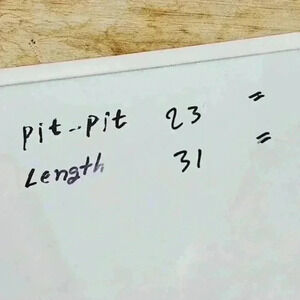 Pit--Pit 23 "
Length 31 "